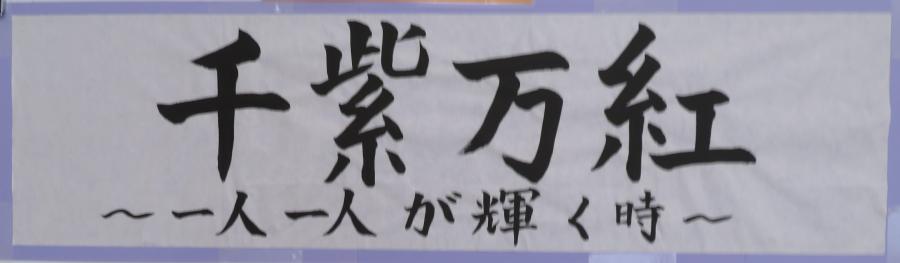 千紫万紅
～一人一人が輝く時～